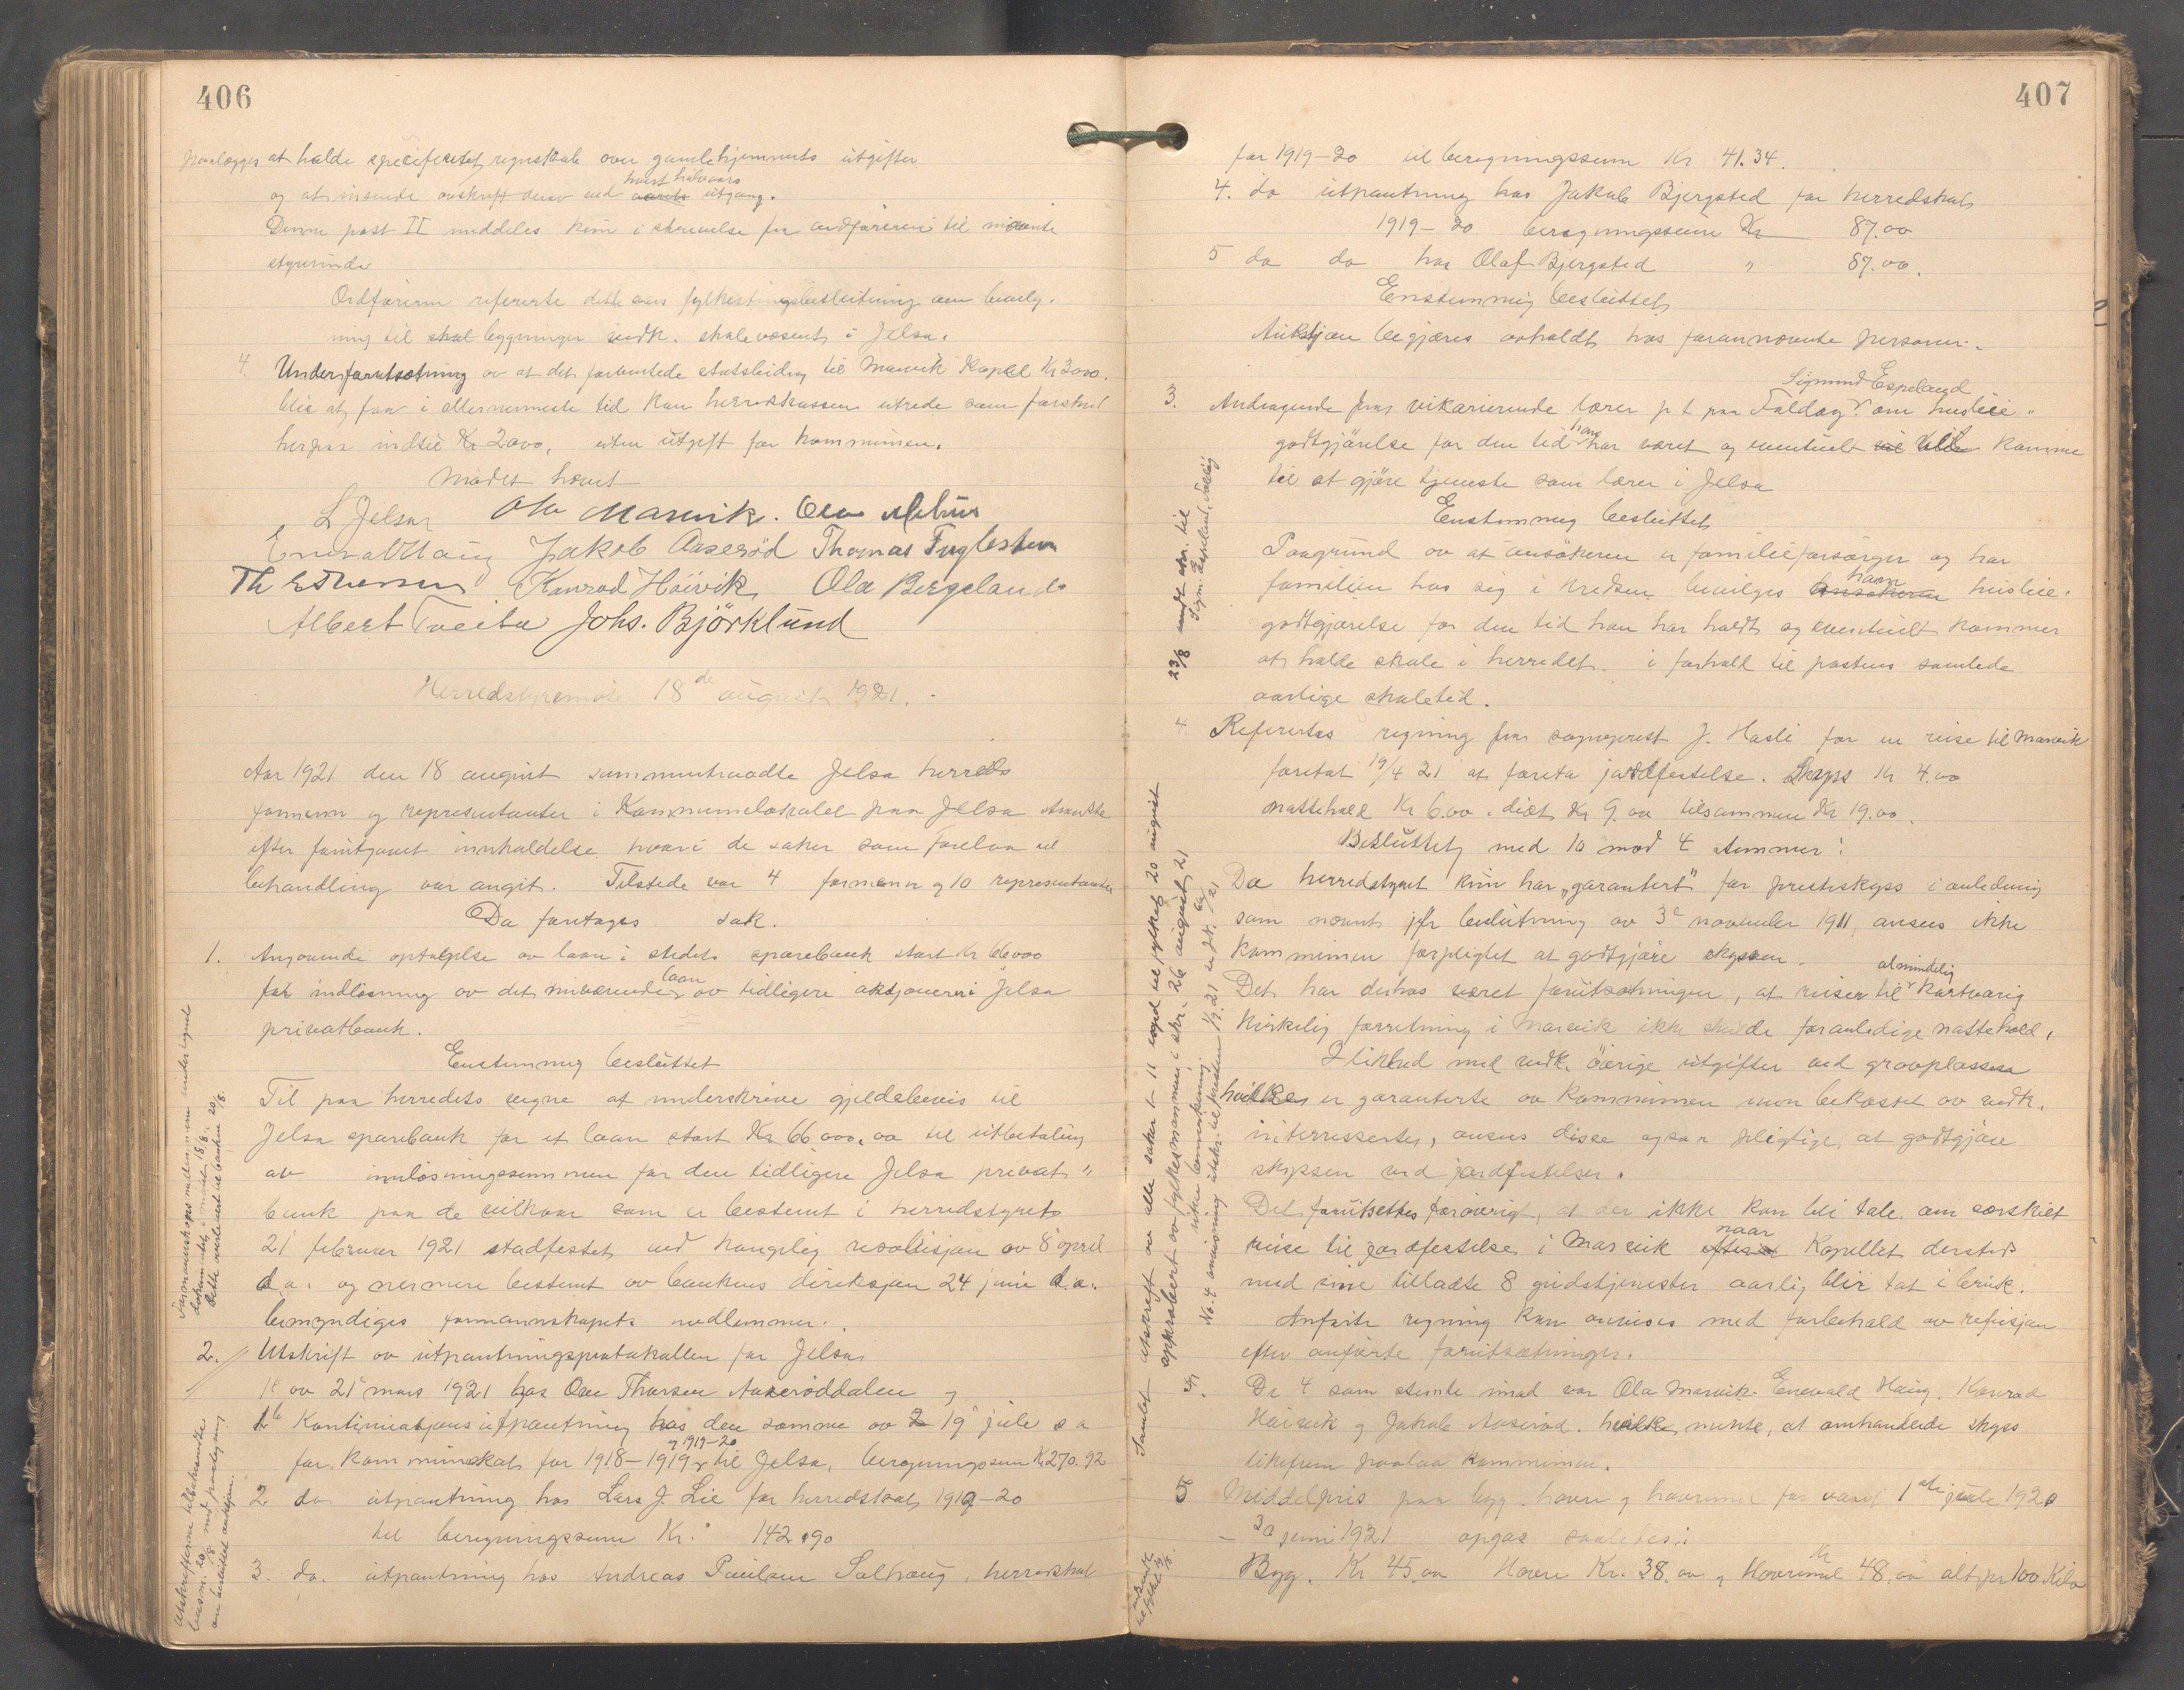 406
paalægges at holde specificeret regnskab over gamlehjemmets utgifter
og at insende avskrift derav ved hvert halvaars utgang.
Denne post II meddeles kun i skrivelse fra ordføreren til nævnte
styrerinde
Ordføreren refererte dette aars fylkestingsbeslutning om bevilg-
ning til skol bygninger vedk. skolevæsenet i Jelsa.
4. Under forutsætning av at det forventede statsbidrag til Marvik Kapel Kr 3000.
blir at faa i allernærmeste tid kan herredskassen utrede som forskud
herpaa indtil Kr 2000, uten utgift for kommunen.
Mødet hævet
L Jelsa Ola Marvik. Ola Mehus
Enevald Haug Jakob Aaserød Thomas Fuglestein
Th Thorsen Konrad Høivik Ola Bergeland
Albert Tveita Johs. Björklund
Herredstyremøte 18de august 1921.
Aar 1921 den 18 august sammentraadte Jelsa herreds
formenn og representanter i Kommunelokalet paa Jelsa
efter forutgaaet innkaldelse hvori de saker som forelaa til
behandling var angit. Tilstede var 4 formenn og 10 representanter
Da foretages sak.
1. Angaaende optagelse av laan i stedets sparebank stort Kr 66000
for indløsning av det nuværende laan av tidligere aktjonerer i Jelsa
privatbank.
Enstemmig besluttet
Til paa herredets vegne at underskrive gjeldsbevis til
Jelsa sparebank for et laan stort Kr 66000,00 til utbetaling
av innløsningssummen for den tidligere Jelsa privat"
bank paa de vilkaar som er bestemt i herredstyret
21 februar 1921 stadfestet ved kongelig resolusjon av 8 april
d.a. og nærmere bestemt av bankens direksjon 24 juni d.a.
bemyndiges formannskapets medlemmer.
2. Utskrift av utpantningsprotokollen for Jelsa
1e av 21 mars 1921 hos Ove Thorsen Aakerøddalen og
1b Kontinuasjons utpantning hos den samme av 19 juli s a
for kommuneskat for 1918-1919 og 1919-20 til Jelsa, beregningssum Kr 270.92
2 do utpantning hos Lars J. Lie for herredskat 1919-20
til beregningssum Kr. 142.90
3. do. utpantning hos Andreas Paulsen Solhaug, herredskat
Formannskapsmedlemmene undertegnet
dokumentet i møtet 18/8.
Dette overlevert til banken 20/8.
Utskrifterne tilbakesendte
lensm. 20/8 med paategning
om besluttet auksjon.
407
for 1919-20 til beregningssum Kr 41.34.
4. do utpantning hos Jakob Bjergsted for herredskat
1919-20 beregningssum Kr 87.00
5 do do hos Olaf Bjergsted " 87.00.
Enstemmig besluttet
Auksjon begjæres avholdt hos forannævnte personer.
3. Andragende fra vikarierende lærer p t paa Foldøy Sigmund Espeland om husleie"
godtgjørelse for den tid han har været og eventuelt vil komme
til at gjøre tjeneste som lærer i Jelsa
Enstemmig besluttet
Paagrund av at ansøkeren er familieforsørger og har
familien hos sig i kredsen bevilges ansøkeren ham husleie-
godtgjørelse for den tid han har holdt og eventuelt kommer
at holde skole i herredet. i forhold til postens samlede
aarlige skoletid.
23/8 medt skr. til
Sigm. Espeland, Foldøy
4. Referertes regning fra sogneprest J. Hasle for en reise til Marvik
foretat 19/4 21 at foreta jordfestelse. Skyss Kr 4.00
nattehold Kr 6.00. diæt Kr 9.00 tilsammen Kr 19.00.
Besluttet med 10 mod 4 stemmer:
Da herredstyret kun har "garantert" for presteskyss i anledning
som nævnt jfr beslutning av 3e november 1911, ansees ikke
kommunen forpligtet at godtgjøre skyssen.
Det har derhos været forutsætningen, at reiser til almindelig kortvarig
kirkelig forretning i Marvik ikke skulde foranledige nattehold.
I likhed med vedk. øvrige utgifter ved gravplassen
hvilke er garanterte av kommunen men bekostet av vedk.
interresserte, ansees disse ogsaa pligtige, at godtgjøre
skyssen ved jordfestelser.
Det forutsettes forøvrig, at der ikke kan bli tale om særskilt
reise til jordfestelse i Marvik naar Kapellet dersteds
med sine tilladte 8 gudstjenester aarlig blir tat i bruk.
Anførte regning kan anvises med forbehold av refusjon
efter anførte forutsætninger.
De 4 som stemte imod var Ola Marvik. Enevald Haug. Konrad
Høivik og Jakob Aaserød. hvilke mente, at omhandlede skyss
likefrem paalaa kommunen.
5 Middelpris paa byg. havre og havremel for vaaret 1ste juli 1920
- 30 juni 1921 opgas saaledes:
Byg. Kr 45.00 Havre Kr. 38.00 og Havremel Kr 48.00 alt pr 100 Kilo
Samlet utskrift av alle saker 1-11 sendt til fylket 20 august
approbert av fylkesmannen i skr. 26 august 21
uten bemerkning
No. 4 anvisning utskr. til presten 1/9.21